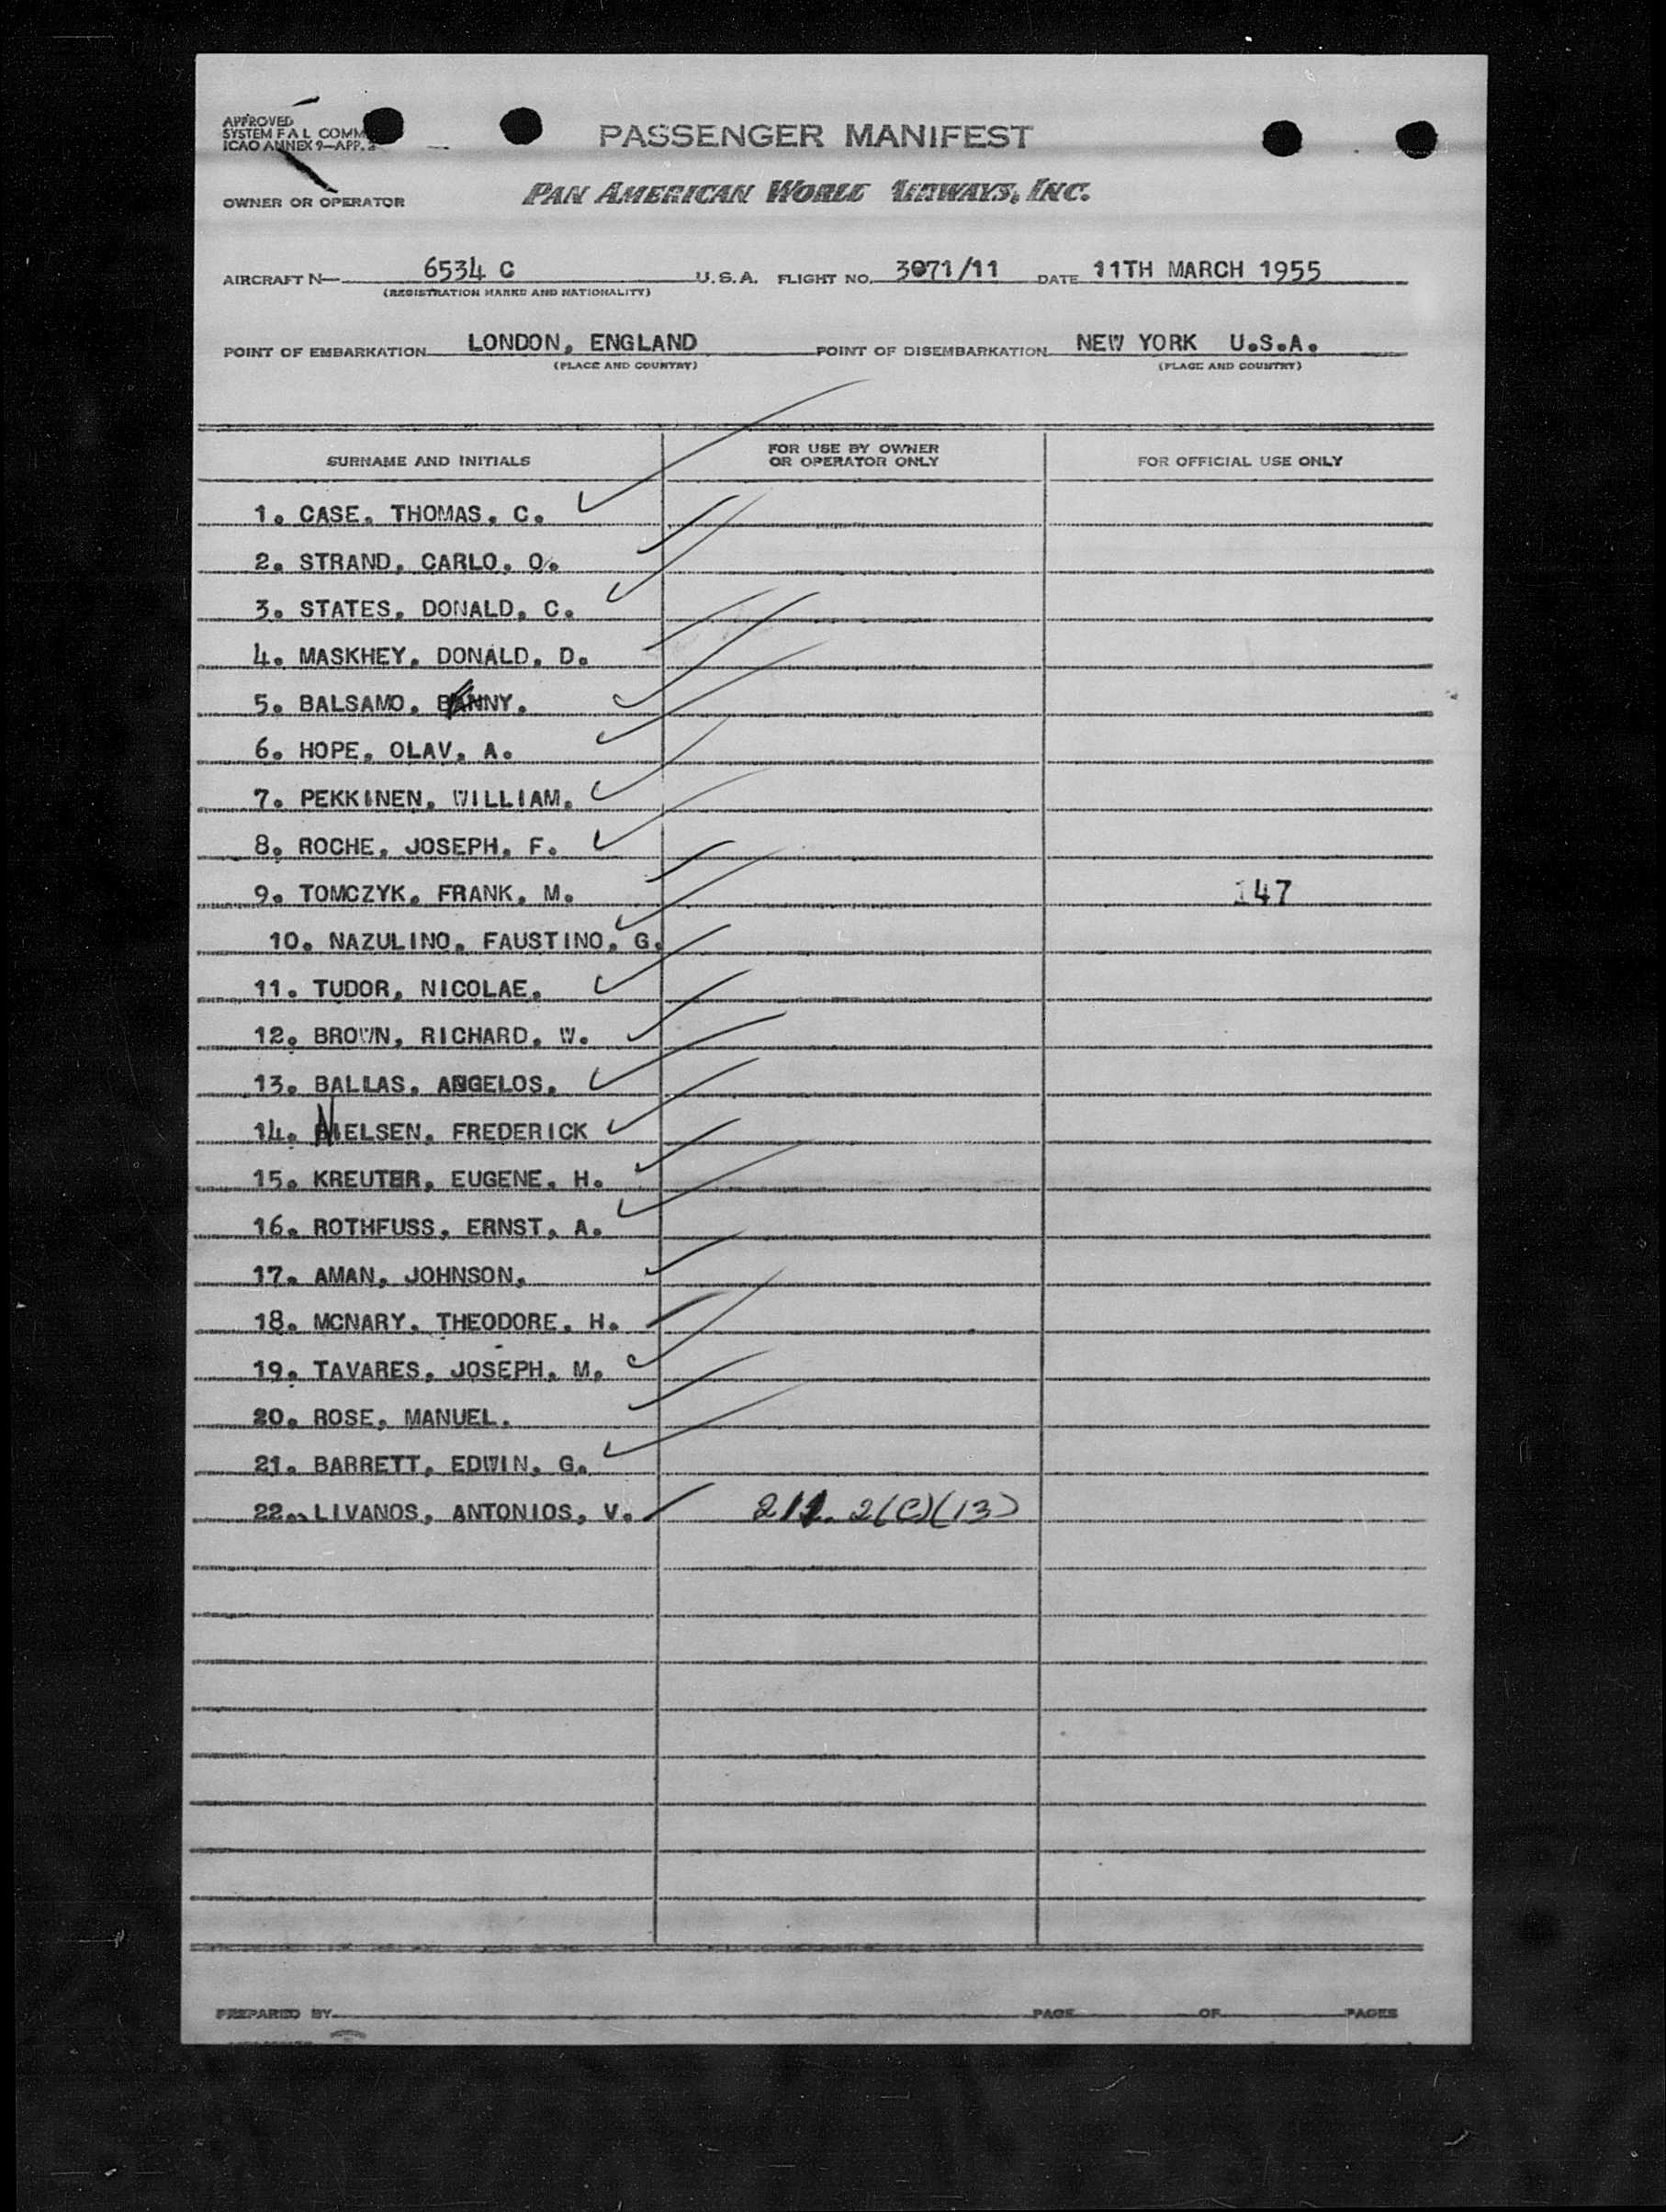 APPROVED
SYSTEM F A L COMM
ICAO ANNEX 9—APP. 2
PASSENGER MANIFEST
OWNER OR OPERATOR PAN AMERICAN WORLD AIRWAYS, INC.
AIRCRAFT N— 6534 C U.S.A. FLIGHT NO. 3071/11 DATE 11TH MARCH 1955
(REGISTRATION MARKS AND NATIONALITY)
POINT OF EMBARKATION LONDON, ENGLAND POINT OF DISEMBARKATION NEW YORK U.S.A.
(PLACE AND COUNTRY) (PLACE AND COUNTRY)
SURNAME AND INITIALS FOR USE BY OWNER OR OPERATOR ONLY FOR OFFICIAL USE ONLY
1. CASE, THOMAS, C.
2. STRAND, CARLO, O.
3. STATES, DONALD, C.
4. MASKHEY, DONALD, D.
5. BALSAMO, BANNY.
6. HOPE, OLAV, A.
7. PEKKINEN, WILLIAM.
8. ROCHE, JOSEPH, F.
9. TOMCZYK, FRANK, M. 147
10. NAZULINO, FAUSTINO, G.
11. TUDOR, NICOLAE.
12. BROWN, RICHARD, W.
13. BALLAS, ANGELOS.
14. NIELSEN, FREDERICK
15. KREUTER, EUGENE, H.
16. ROTHFUSS, ERNST, A.
17. AMAN, JOHNSON.
18. MCNARY, THEODORE, H.
19. TAVARES, JOSEPH, M.
20. ROSE, MANUEL.
21. BARRETT, EDWIN, G.
22. LIVANOS, ANTONIOS, V. 211. 2(C)(13)
PREPARED BY PAGE OF PAGES